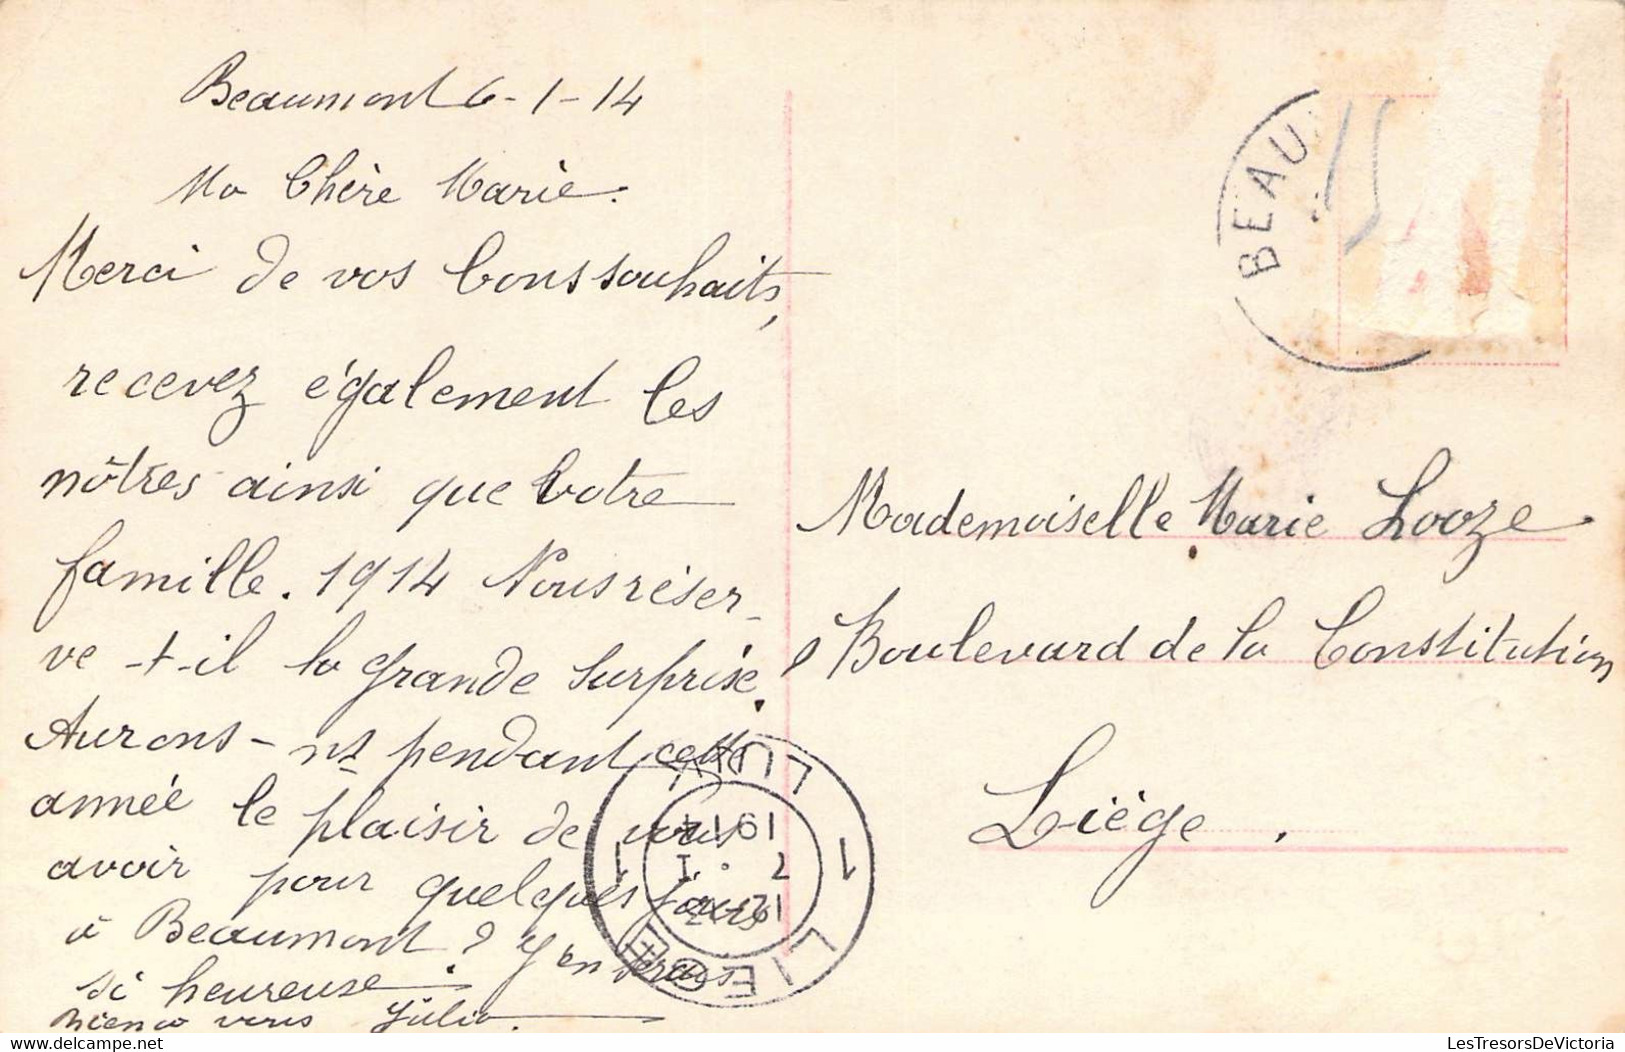 Beaumont 6-1-14
Ma Chère Marie.
Merci de vos bons souhaits,
recevez également les
nôtres ainsi que votre
famille. 1914 Nous réser-
ve-t-il la grande surprise.
Aurons-ns pendant cette
année le plaisir de vous
avoir pour quelques jours
à Beaumont? J'en serais
si heureuse.
Bien à vous Julia.
BEAU
Mademoiselle Marie Looze
Boulevard de la Constitution
Liège.
1 LIEGE 1 LUIK
1914
7 · I
LesTresorsDeVictoria
LesTresorsDeVictoria.com